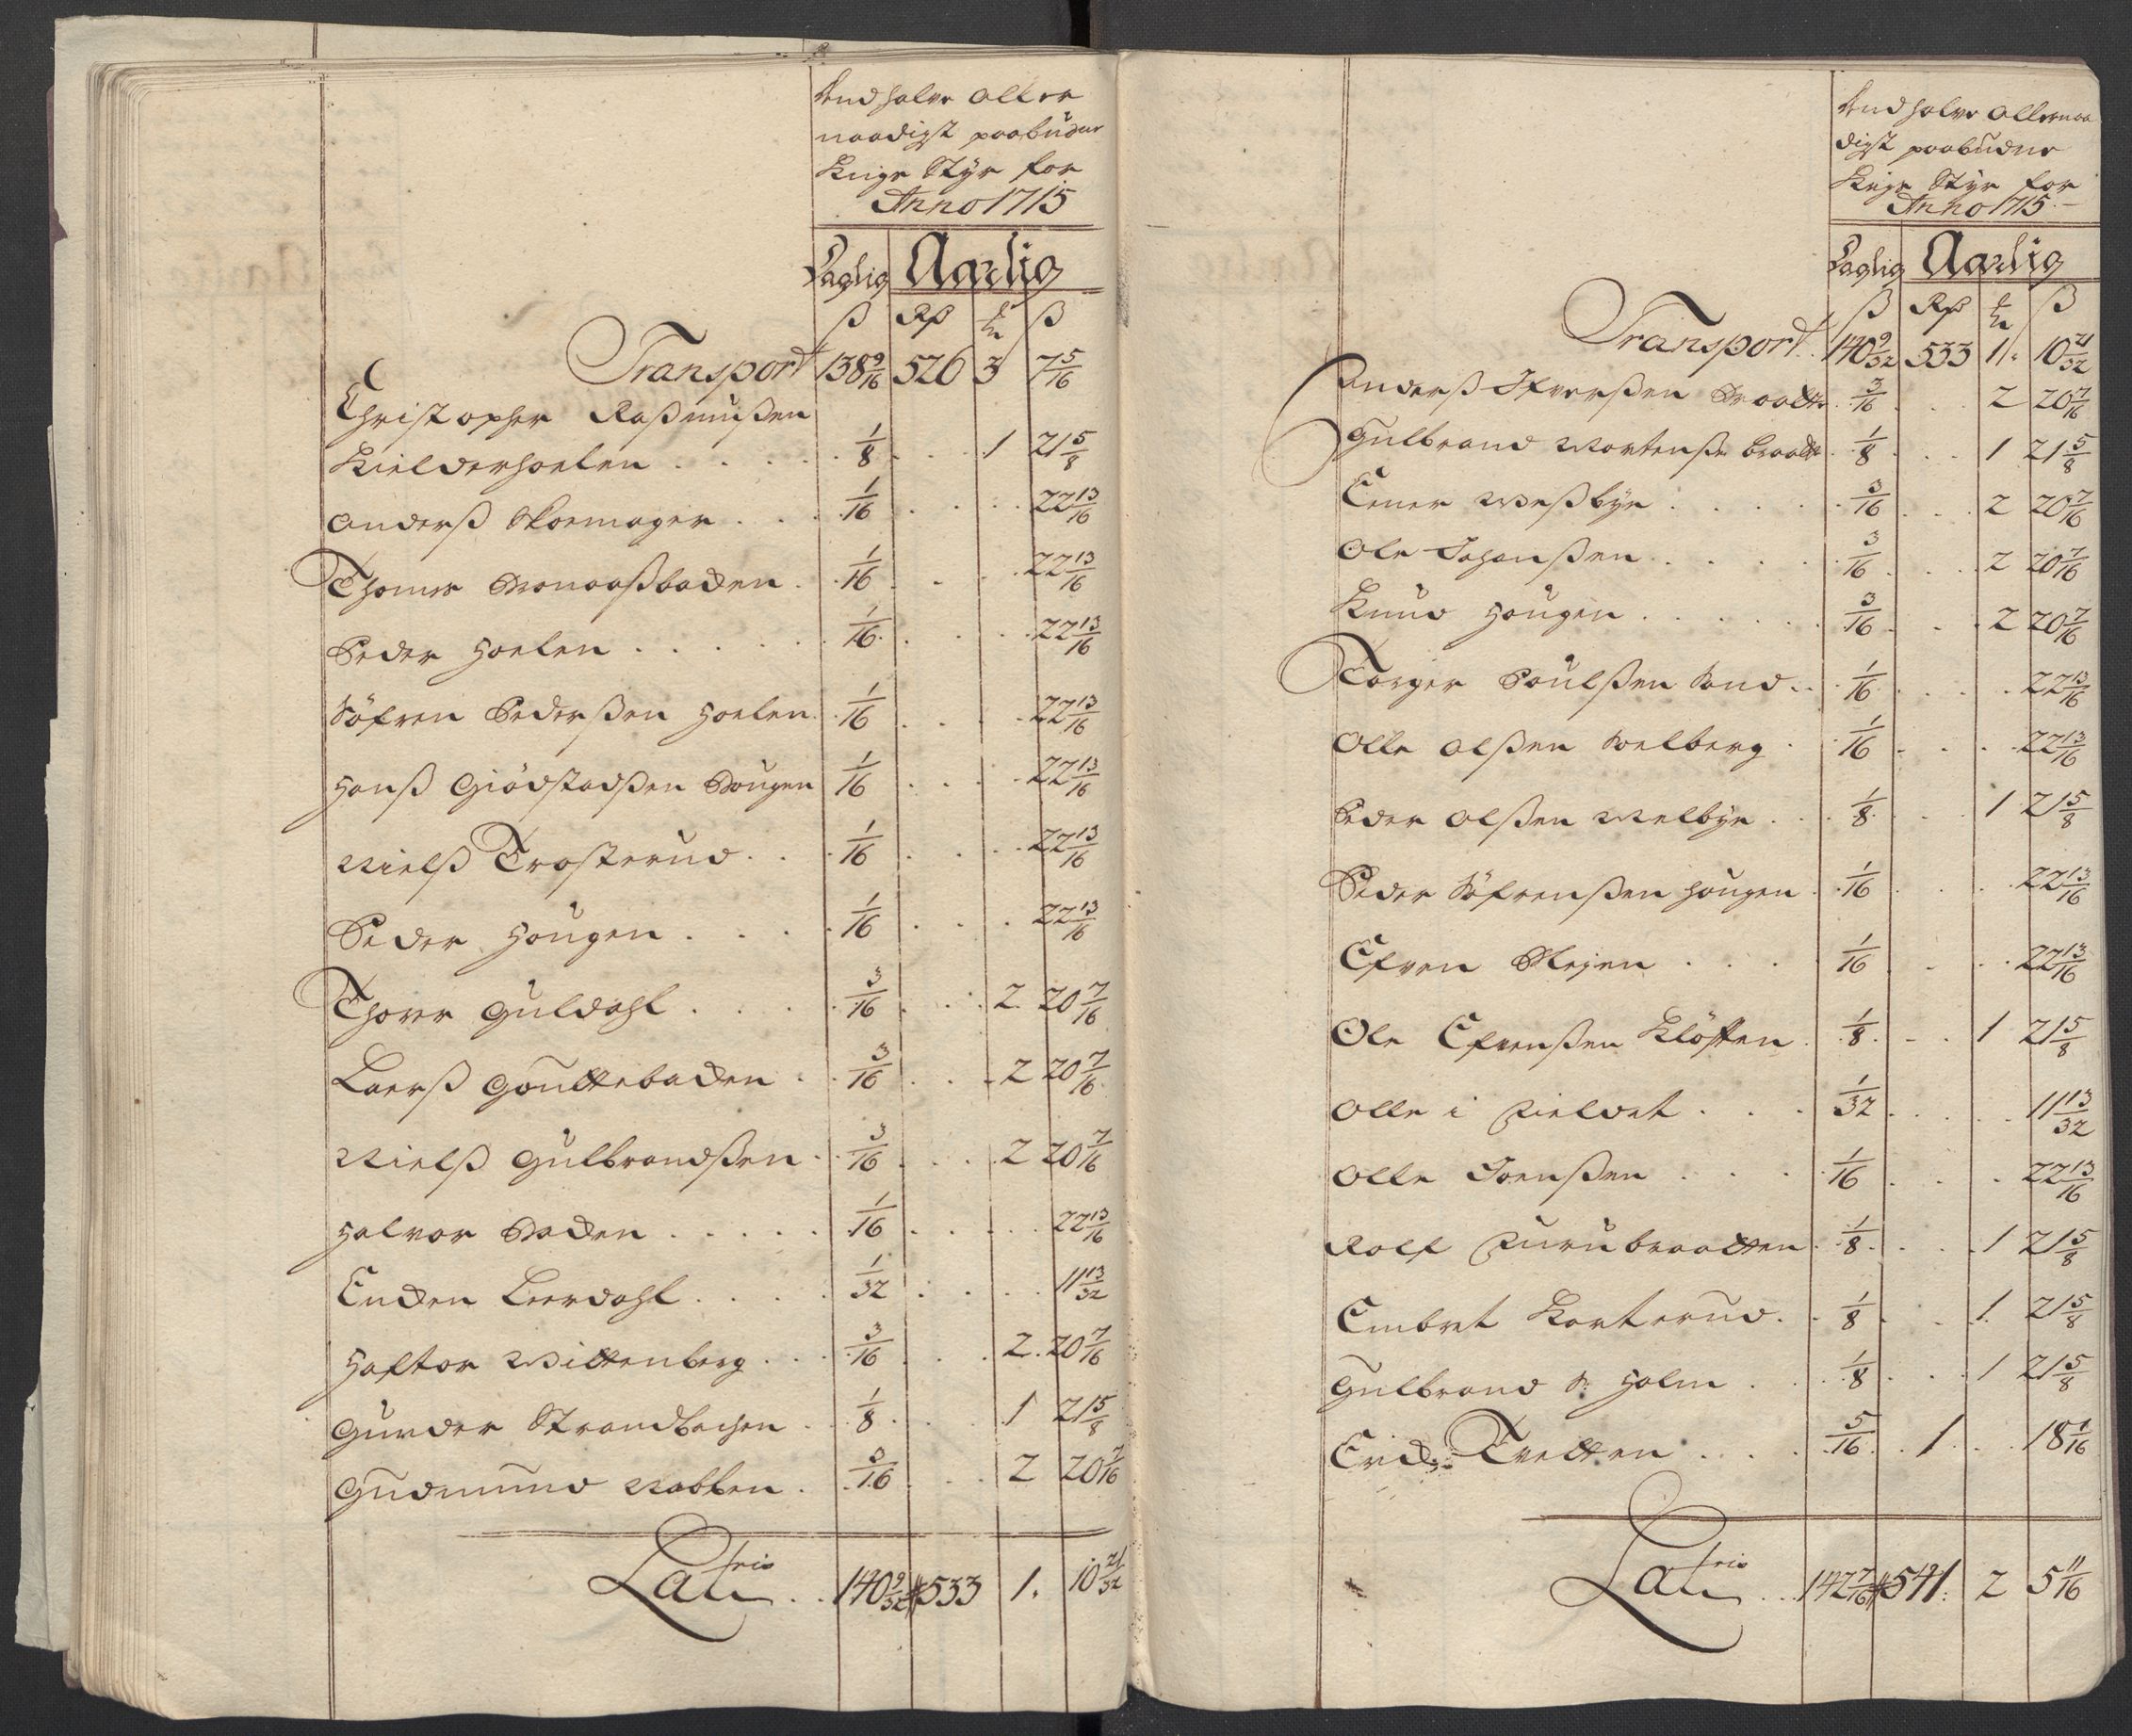 naadigst paabudne
Krigs Styr for
Anno 1715
Daglig Aarlig
ß Rß ß
Transport 138 9/16 526 3 7 5/16
Christopher Rasmußen
Kielderhoelen 1/8 1 21 5/8
Anderß Skoemager 1/16 22 13/16
Thomes 1/16 22 13/16
Peder Hoelen 1/16 22 13/16
Söfren Pederßen Hoelen 1/16 22 13/16
Hanß Giödstadßen Hougen 1/16 22 13/16
Nielß Trosterud 1/16 22 13/16
Peder Hougen 1/16 22 13/16
Thorer Guldahl 3/16 2 20 7/16
Laerß 3/16 2 20 7/16
Nielß Gulbrandßen 3/16 2 20 7/16
Halvor Backen 1/16 22 13/16
Enden Leerdahl 1/32 11 13/32
Haftor Wittenberg 3/16 2 20 7/16
Gunder Strandbachen 1/8 1 21 5/8
Gudmund Nabben 3/16 2 20 7/16
Lateris 140 9/32 533 1 10 21/32
digst paabudne
Krigs Styr for
Anno 1715
Daglig Aarlig
ß Rß ß
Transport 140 9/32 533 1 10 21/32
Anderß Ifverßen Braatte 3/16 2 20 7/16
Gulbrand Mortenße Braatte 1/8 1 21 5/8
Ener Weßbye 3/16 2 20 7/16
Ole Johanßen 3/16 2 20 7/16
Knud Hougen 3/16 2 20 7/16
Torger Poulßen Sand 1/16 22 13/16
Olle Olßen Soelberg 1/16 22 13/16
Peder Olßen Melbye 1/8 1 21 5/8
Peder Söfrenßen Hougen 1/16 22 13/16
Efven Stejen 1/16 22 13/16
Ole Efvenßen Klöften 1/8 1 21 5/8
Olle i Fieldet 1/32 11 13/32
Olle Joenßen 1/16 22 13/16
Rolf Furubraatten 1/8 1 21 5/8
Embret Korterud 1/8 1 21 5/8
Gulbrand Holm 1/8 1 21 5/8
Erick Tvetten 5/16 1 18 1/16
Lateris 142 7/16 541 2 5 11/16